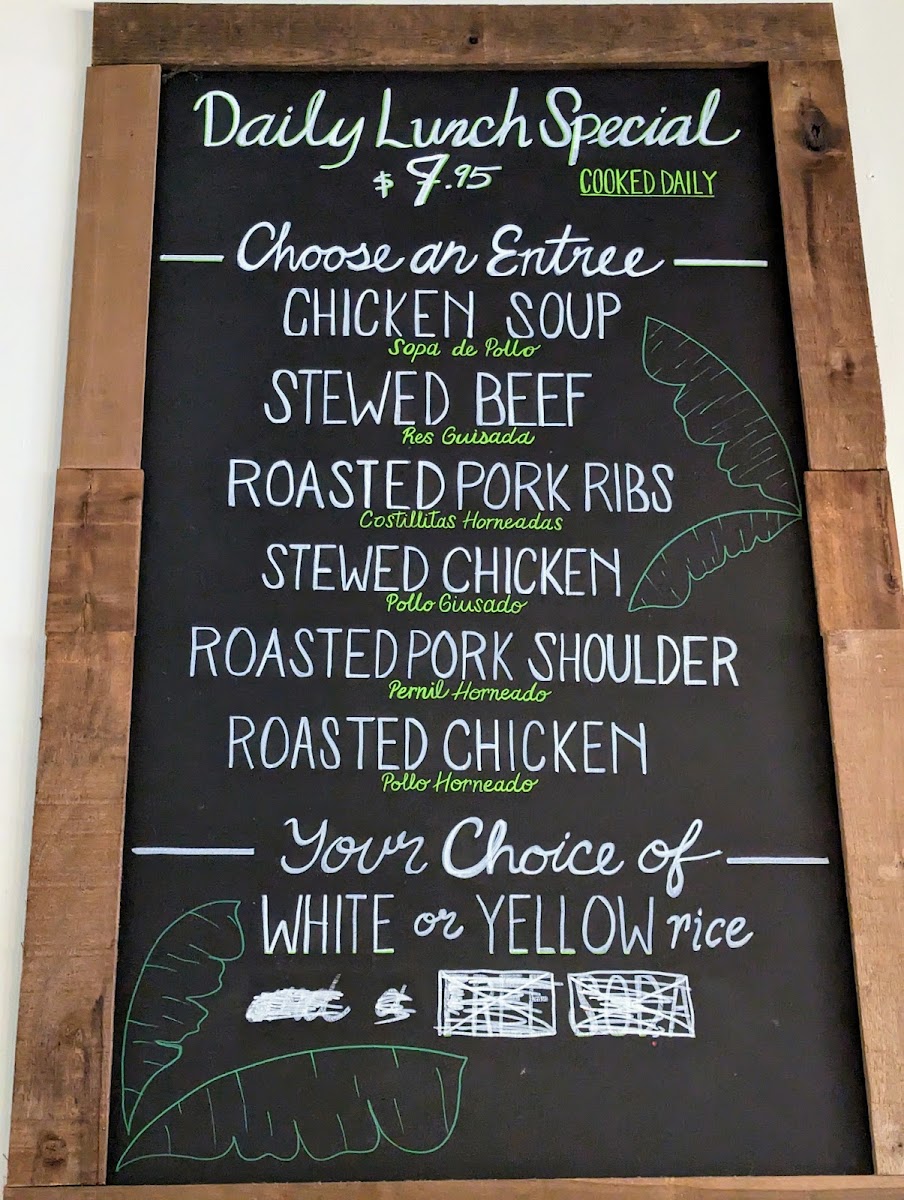 Daily Lunch Special
$7.95
COOKED DAILY
Choose an Entree
CHICKEN SOUP
Sopa de Pollo
STEWED BEEF
Res Guisada
ROASTED PORK RIBS
Costillitas Horneadas
STEWED CHICKEN
Pollo Giusado
ROASTED PORK SHOULDER
Pernil Horneado
ROASTED CHICKEN
Pollo Horneado
Your Choice of
WHITE or YELLOW rice